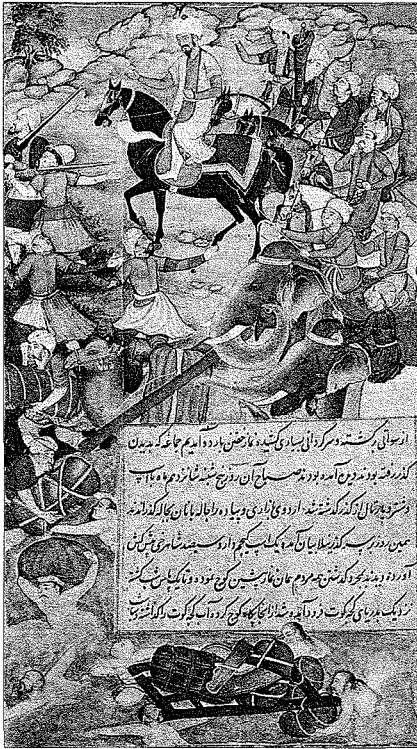 از سواتی برگشته و سرگردانی بسیاری کشیده نماز خفتن باردو آمدیم جماعه که بدیدن
گذر رفته بودند آمده بودند صباح آن روز پنجشنبه شانزدهم ماه باسپ
و شتر و پارتال از گذر گذشته شد اردوی بازاری و پیاده را جاله بانان بجاله گذراندند
همین روز بر سر گذر نیلابیان آمده یک اسپ کیجم دار و سیصد شاهرخی پیشکش
آورده دیدند بمجرد گذشتن همه مردم همان نماز پیشین کوچ نموده و تا یک پاس شب گذشته
نزدیک بدریای کچه کوت فرود آمده شد از انجا پگاه کوچ کرده آب کچه کوت را گذاشته